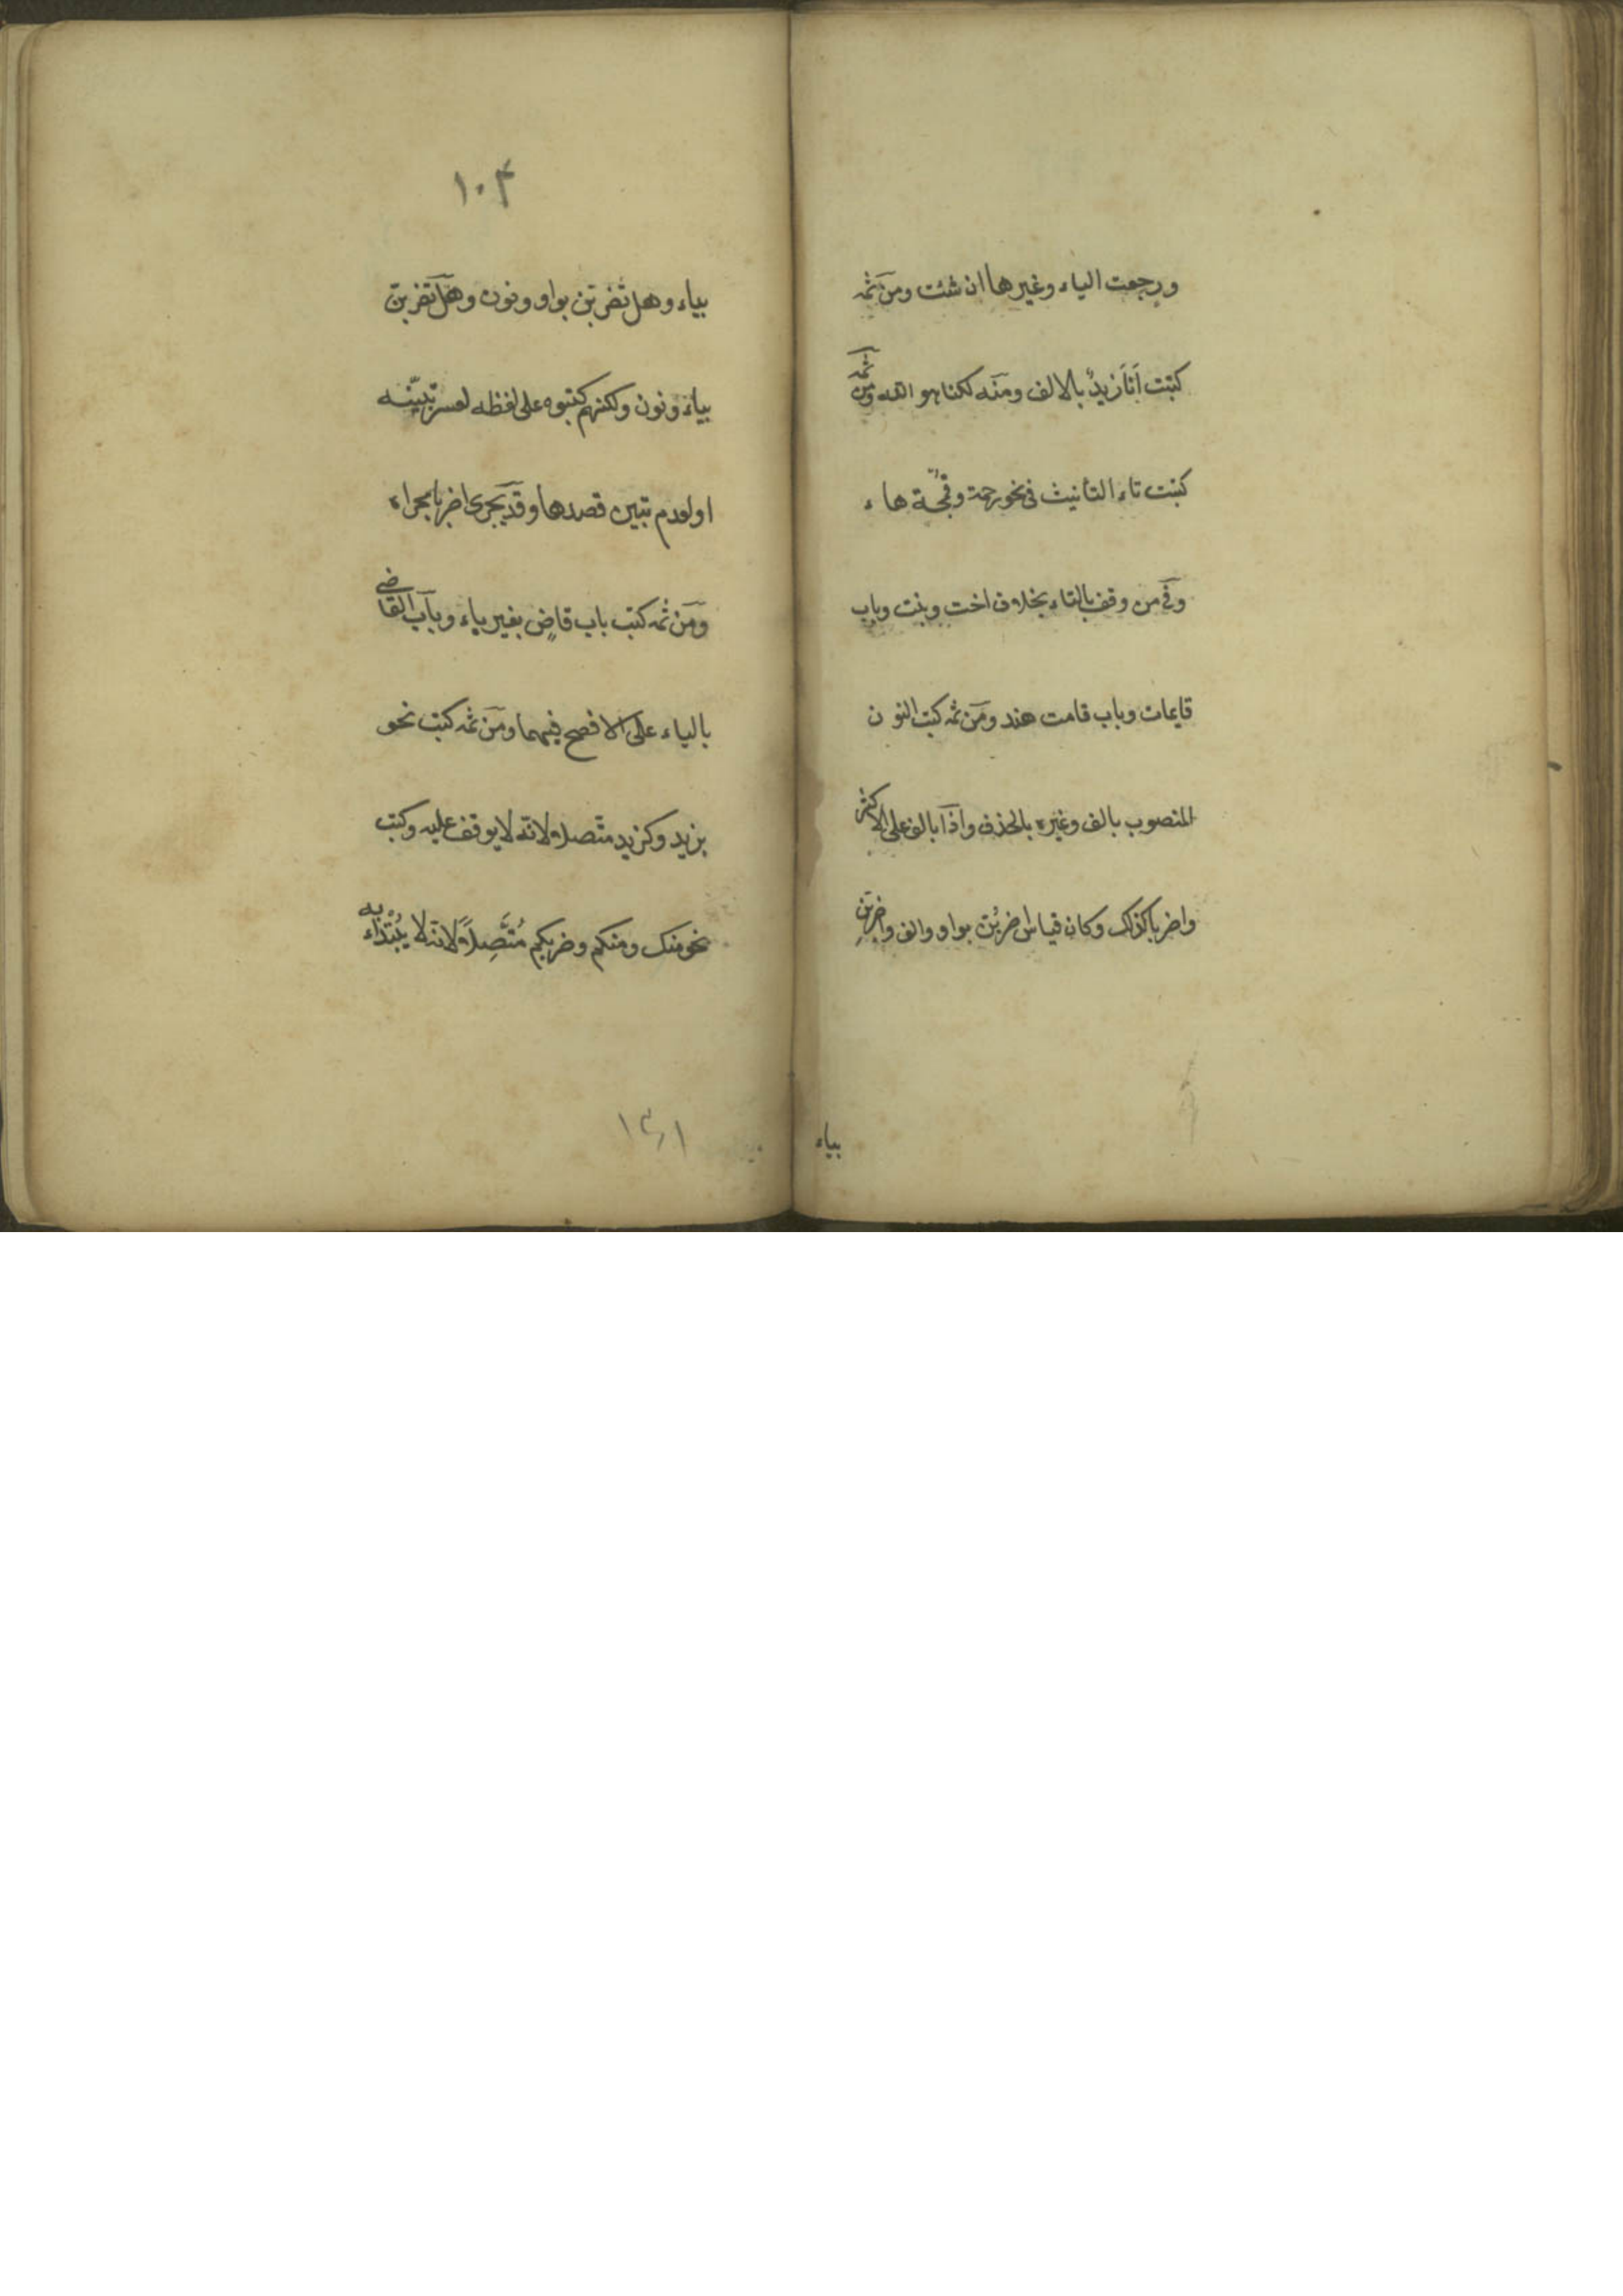 ورجعت الياء وغيرها ان شئت ومن ثمه
كتبت اَنَا زيدٌ بالالف ومنه لكنا هو الله ومن ثمه
كتبت تاء التأنيث فى نحو رحمة وقمحة هاء
وفى من وقف بالتاء بخلاف اخت وبنت وباب
قايمات وباب قامت هند ومن ثمه كتب النون
المنصوب بالف وغيره بالحذف واذا بالف على الاكثر
واضربا كذلك وكان قياس اضربُن بواو والف واضربِن
بياء
١٠٣
بياء وهل تضربُن بواو ونون وهل تضربن
بياء ونون ولكنهم كتبوه على لفظه لعسر تبيّنه
او لعدم تبين قصدها وقد يجرى اضربا مجراه
ومن ثمه كتب باب قاضٍ بغير ياء وباب القاضى
بالياء على الافصح فيهما ومن ثمه كتب نحو
بزيد وكزيد متّصلة لانّه لا يوقف عليه وكتب
نحو منك ومنكم وضربكم مُتَّصِلَةً لانه لا يُبْتَداء به